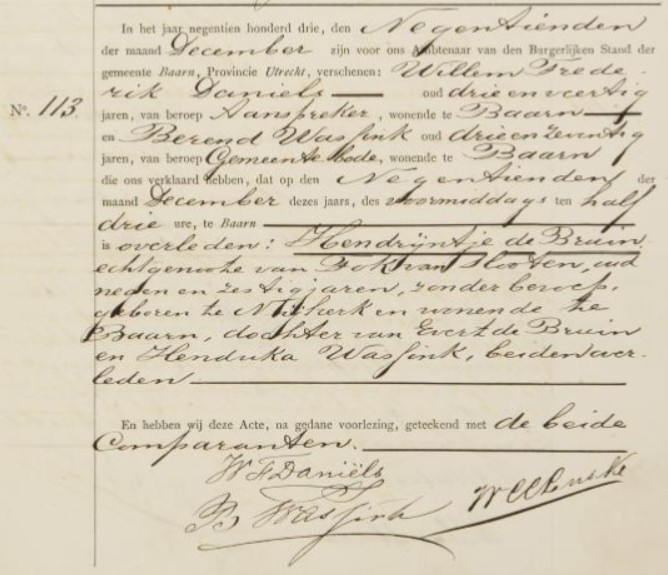 In het jaar negentien honderd drie, den Negentienden
der maand December zijn voor ons Ambtenaar van den Burgerlijken Stand der
gemeente Baarn, Provincie Utrecht, verschenen: Willem Frede-
rik Daniels oud drie en veertig
Nº. 113. jaren, van beroep Aanspreker, wonende te Baarn
en Berend Wassink oud drie en zeventig
jaren, van beroep Gemeentebode, wonende te Baarn
die ons verklaard hebben, dat op den Negentienden der
maand December dezes jaars, des voormiddags ten half
drie ure, te Baarn
is overleden: Hendrijntje de Bruin,
echtgenoote van Fok van Slooten, oud
negen en zestig jaren, zonder beroep,
geboren te Nijkerk en wonende te
Baarn, dochter van Evert de Bruin
en Henduka Wassink, beiden over-
leden
En hebben wij deze Acte, na gedane voorlezing, geteekend met de beide
Comparanten.
W F Daniëls
B Wassink